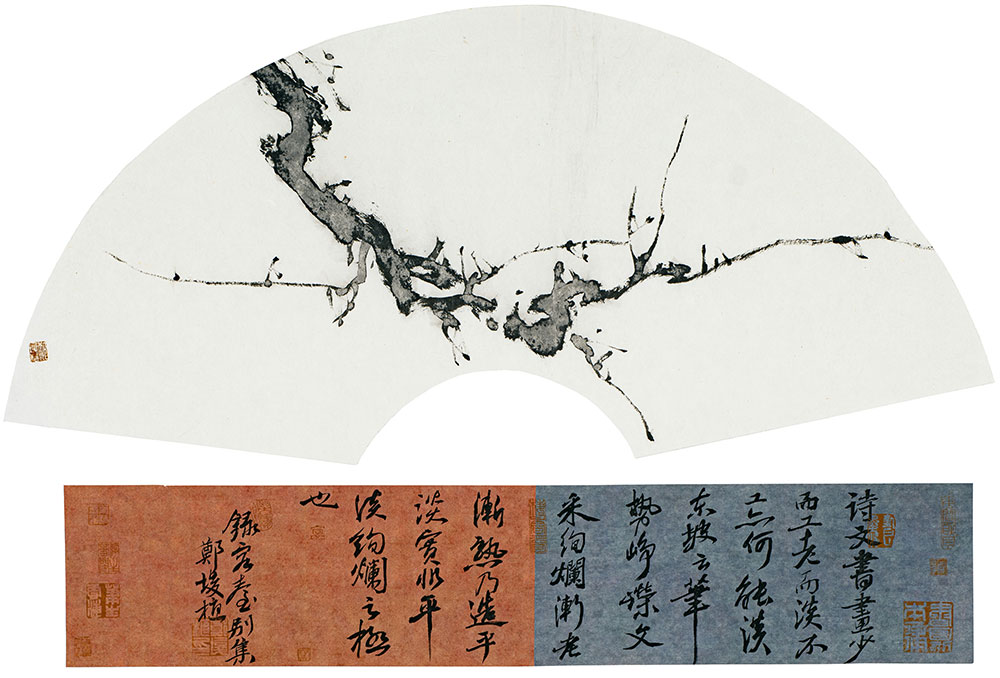 诗文書畫少
而工老而淡不
工亦何能淡
东坡云筆
勢崢嶸文
采絢爛漸老
漸熟乃造平
淡實非平
淡絢爛之極
也
録容臺别集
鄭